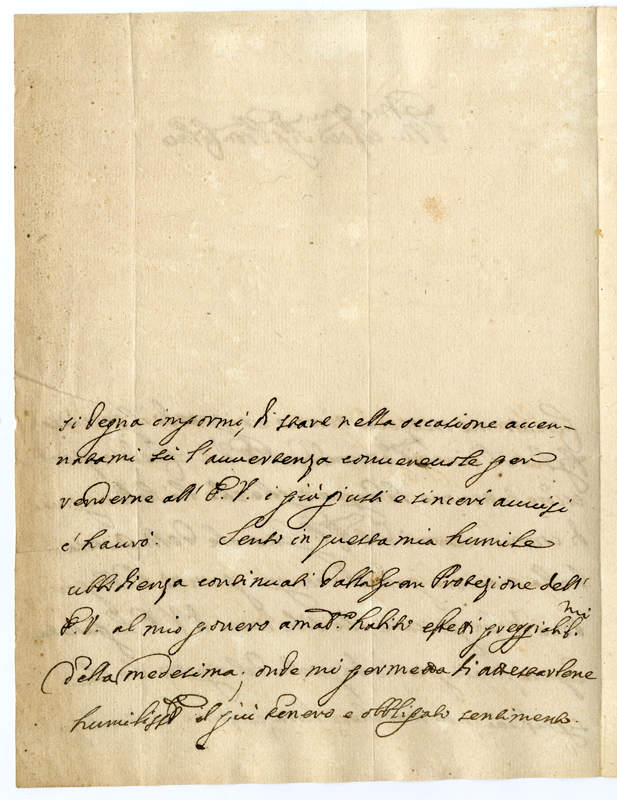 si degna impormi, di stare nella occasione accen-
natami sù l'auuertenza conueneuole per
renderne all' E. V. i più giusti e sinceri auuisi
c'haurò. Sento in questa mia humile
ubbidienza continuati dalla gran Protezione dell'
E. V. al mio pouero amat.º effetti preggiabil.mi
della medesima; onde mi permetta di attestarlene
humiliss.te il più tenero e obbligato sentimento.